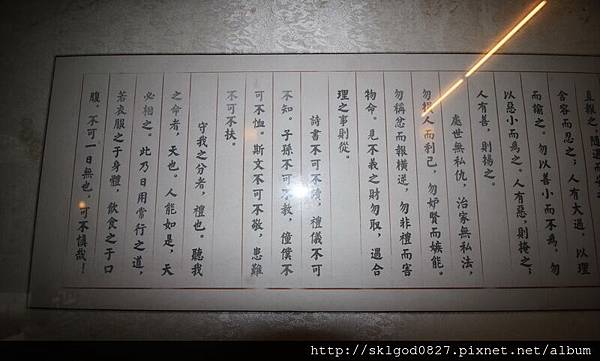 直報之,隨遇而安之
含容而忍之;人有大過,以理
而諭之。勿以善小而不為,勿
以惡小而為之。人有惡,則掩之;
人有善,則揚之。
處世無私仇,治家無私法,
勿損人而利己,勿妒賢而嫉能。
勿稱忿而報橫逆,勿非禮而害
物命。見不義之財勿取,遇合
理之事則從。
詩書不可不讀,禮儀不可
不知。子孫不可不教,僮僕不
可不恤。斯文不可不敬,患難
不可不扶。
守我之分者,禮也。聽我
之命者,天也。人能如是,天
必相之。此乃日用常行之道,
若衣服之于身體,飲食之于口
腹,不可一日無也,可不慎哉!
http://sklgod0827.pixnet.net/album